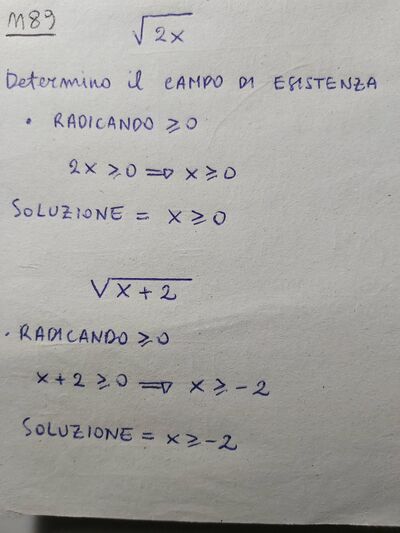 n89
√2x
Determino il CAMPO DI ESISTENZA
• RADICANDO ⩾0
2x ⩾0 ⇒ x ⩾0
SOLUZIONE = x ⩾0
√x + 2
• RADICANDO ⩾0
x+2 ⩾0 ⇒ x ⩾ -2
SOLUZIONE = x ⩾ -2